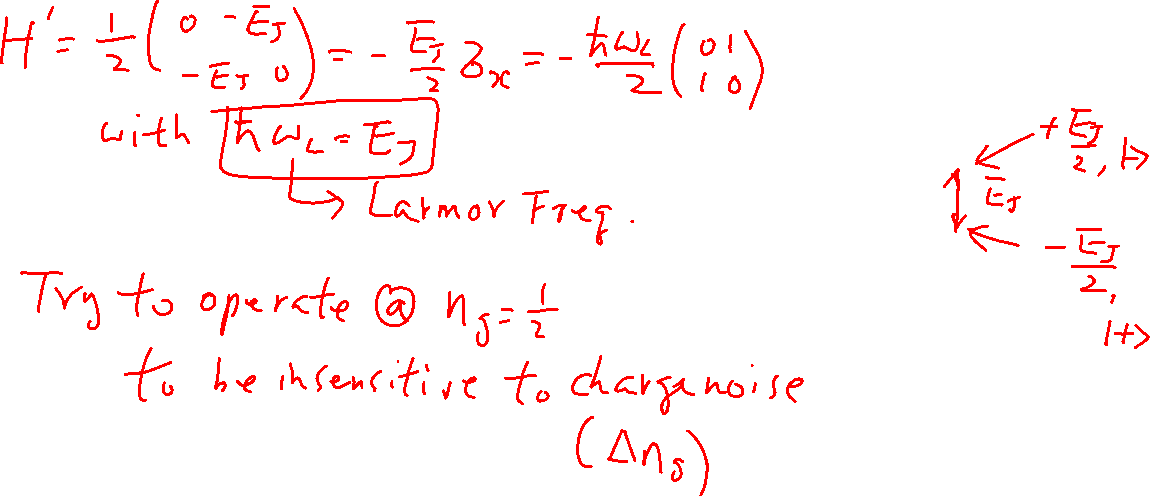 H' = 1/2 (0 -E_J; -E_J 0) = - E_J/2 σ_x = - ħω_L/2 (0 1; 1 0)
with ħω_L = E_J
→ Larmor Freq.
Try to operate @ n_g = 1/2
to be insensitive to charge noise
(Δn_g)
+ E_J/2, |->
E_J
- E_J/2,
|+>